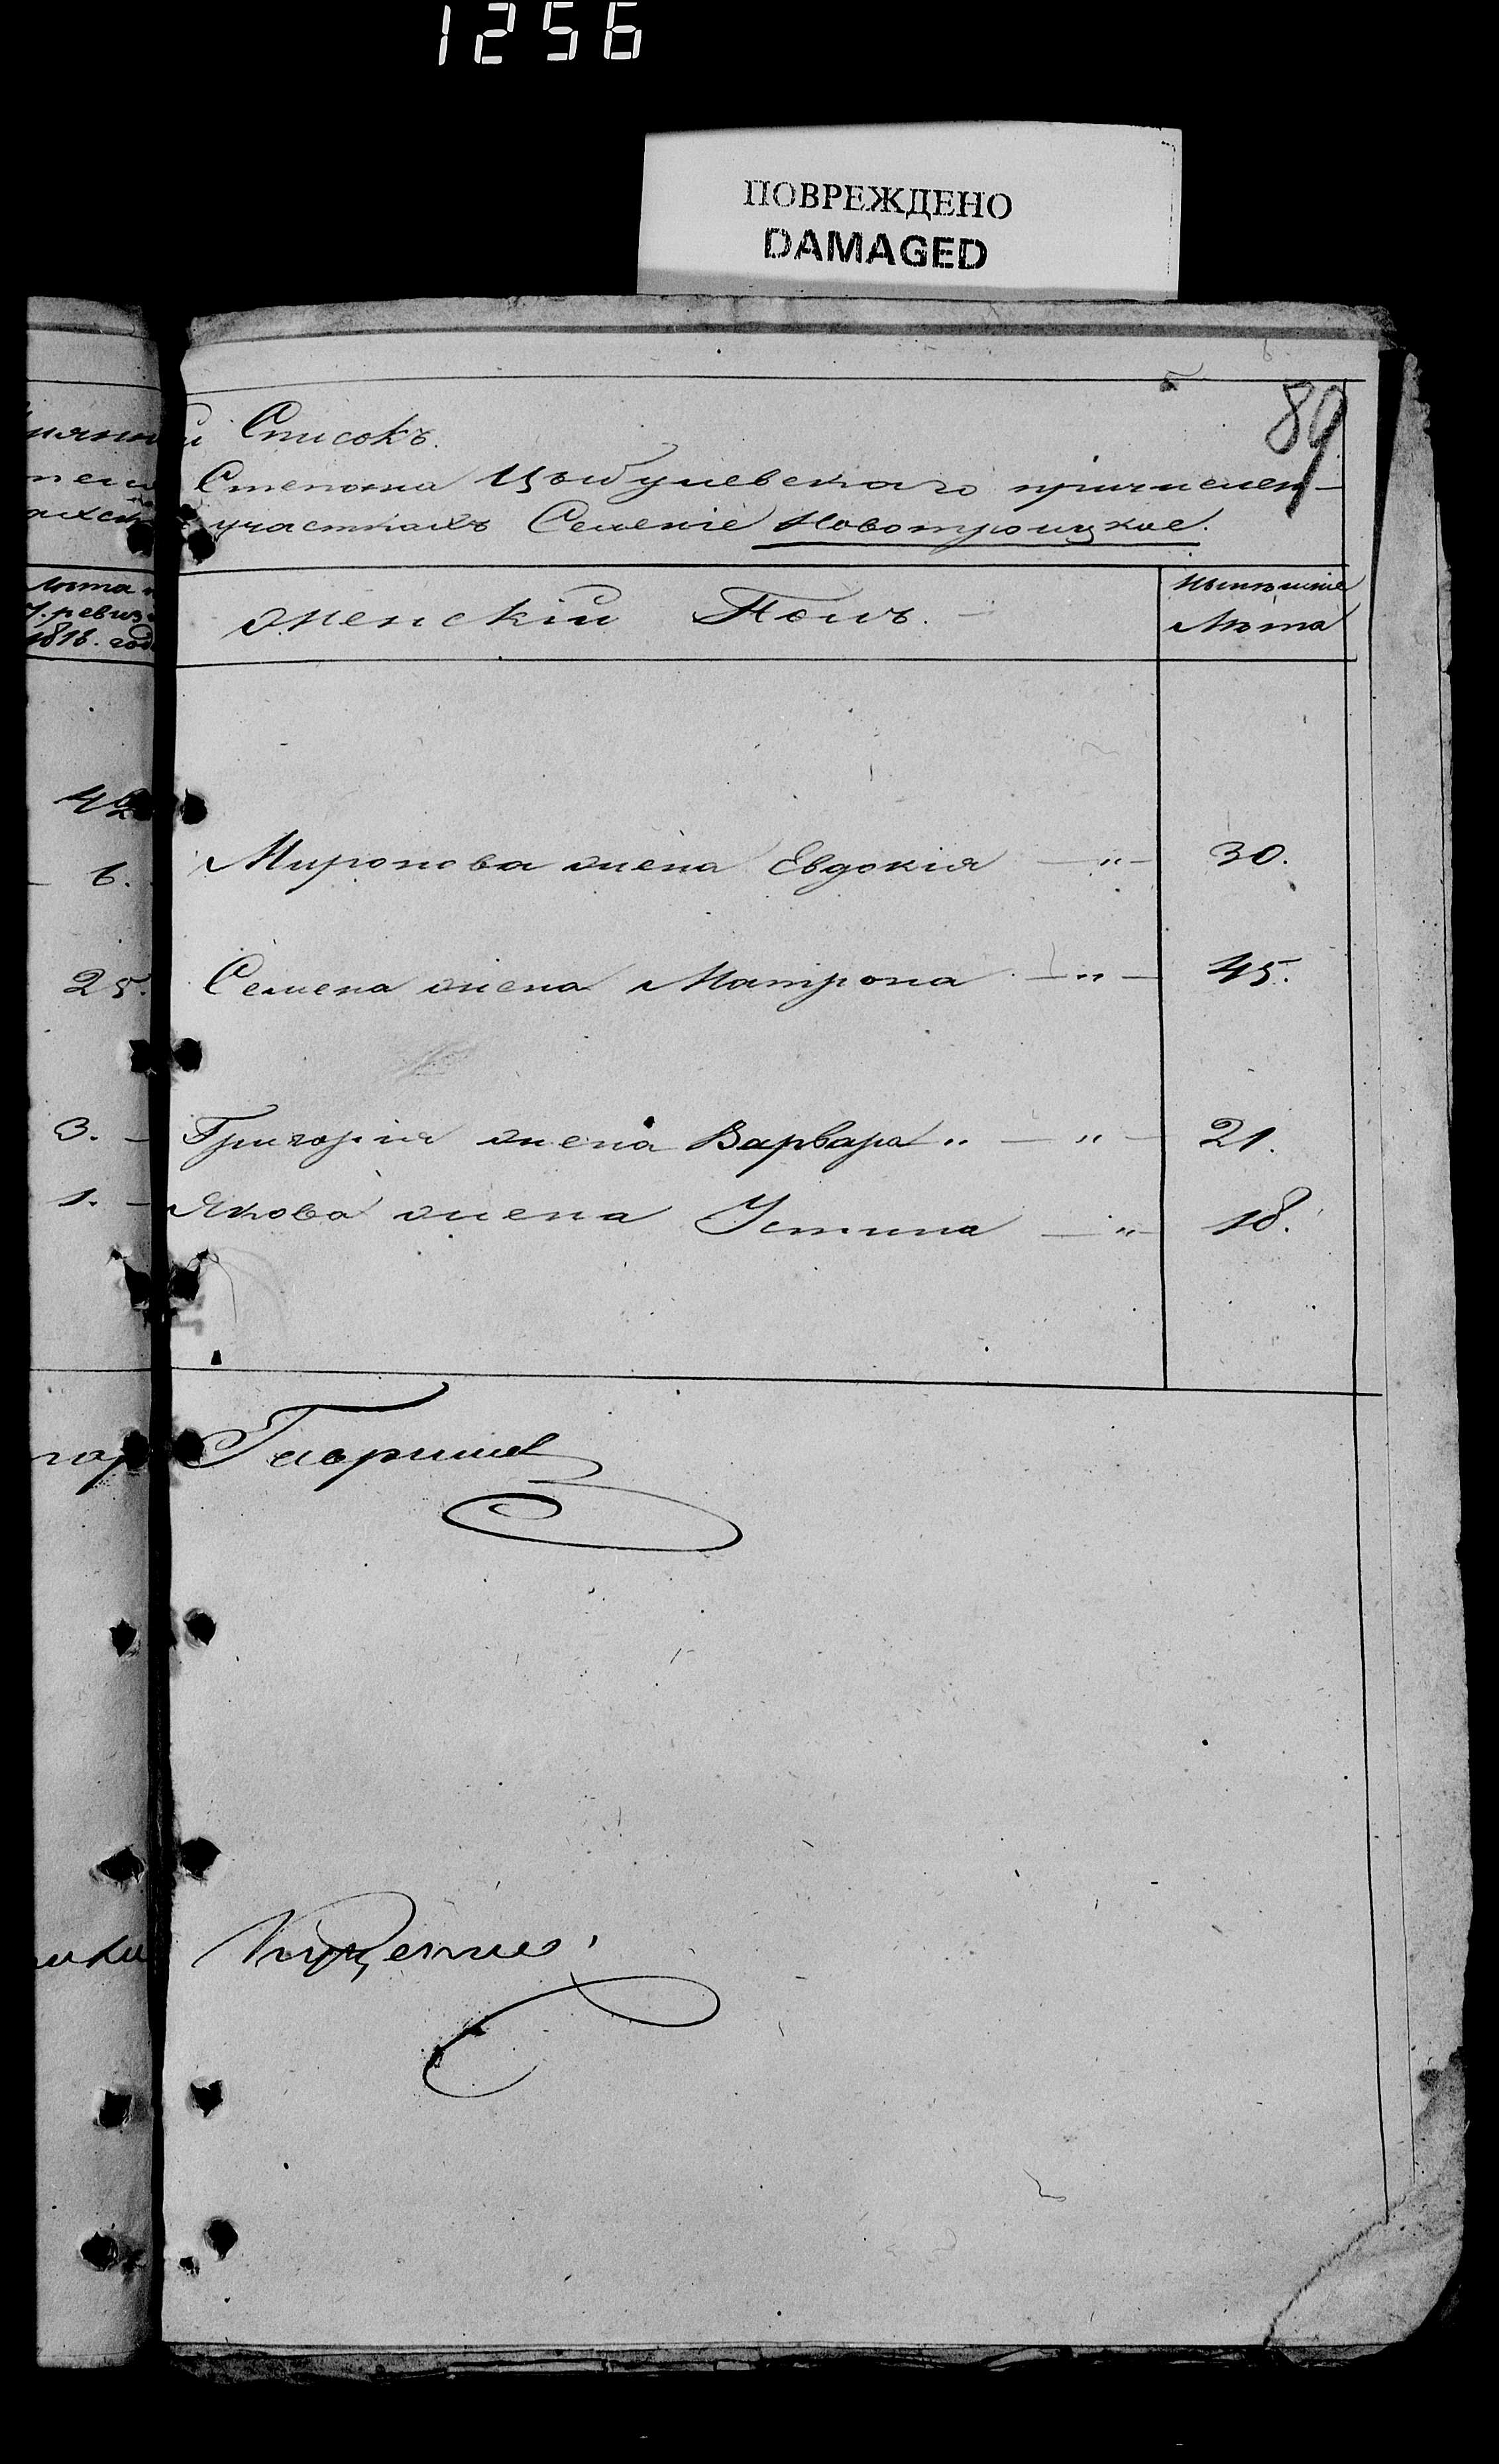 1256
ПОВРЕЖДЕНО
DAMAGED
89
Списокъ.
Степана Цыбулевскаго причислен-
участкахъ Селеніе Новотроицкое.
лѣта
7. ревиз
1816. год
Женскій Полъ.
Нынѣшніе
Лѣта
42
6. Миронова жена Евдокія — „ — 30.
25. Семена жена Матрона — „ — 45.
3. — Григорія жена Варвара „ — „ — 21.
1. — Якова жена Устина — „ — 18.
Гаврилов